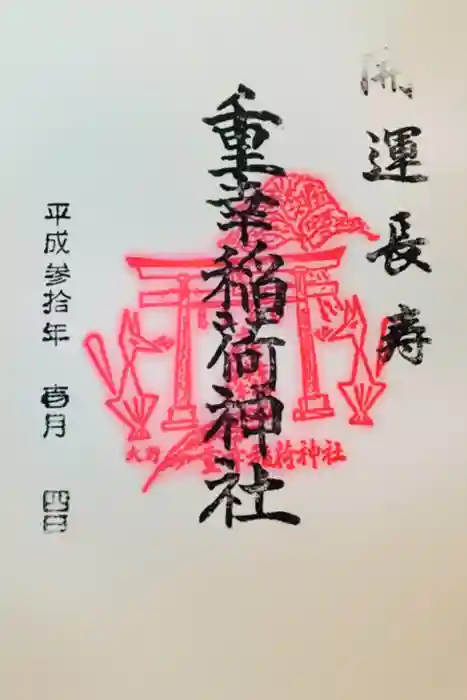 開運長寿
重幸稲荷神社
平成参拾年 壱月 四日
稲荷神社